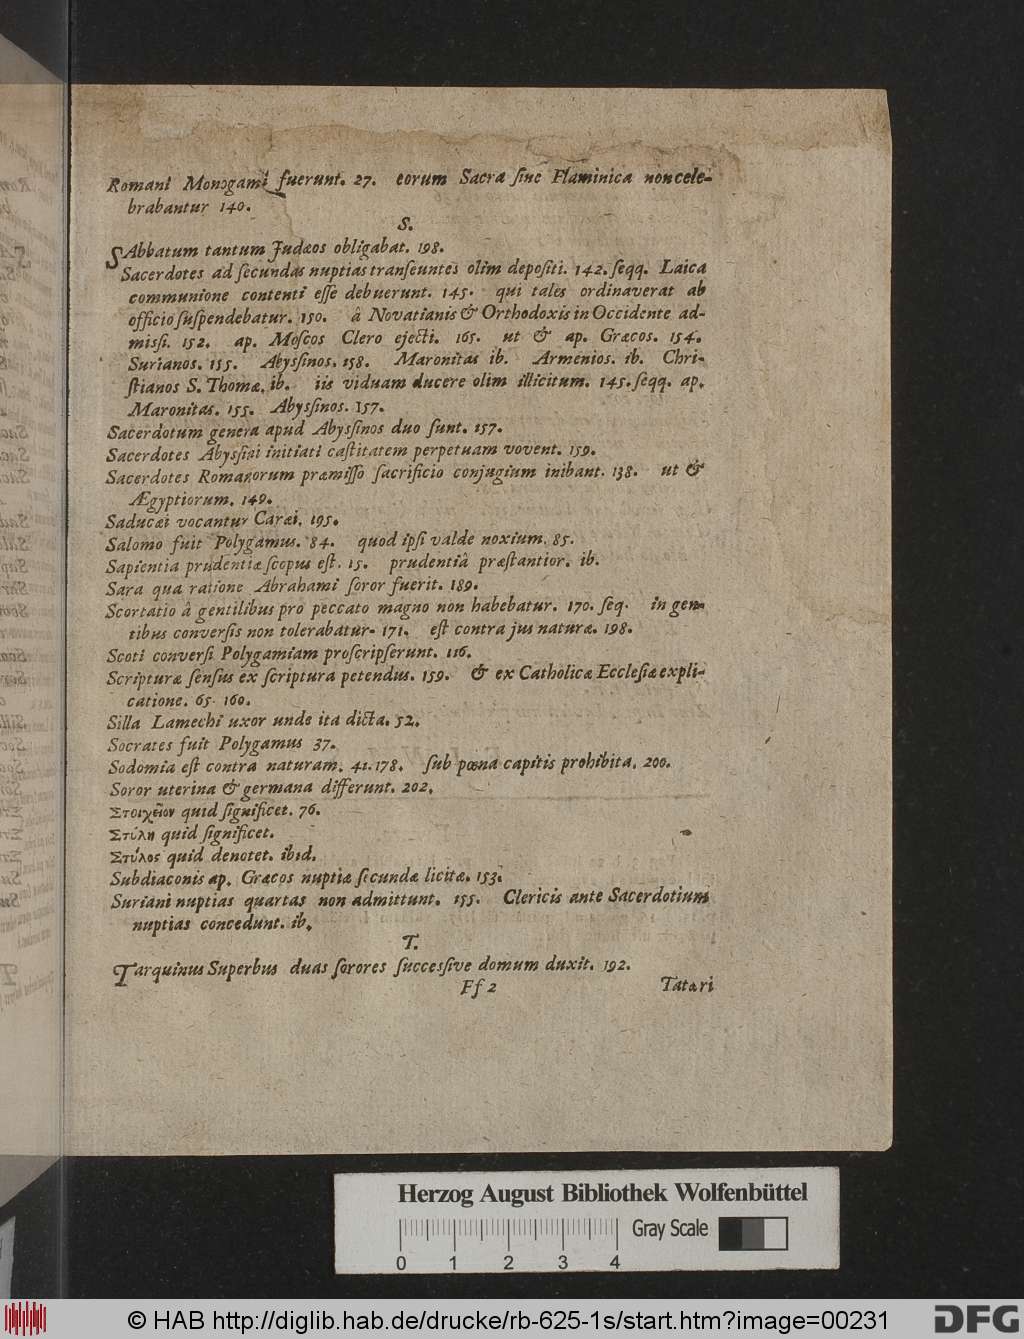 Romani Monogami fuerunt. 27. eorum Sacra ſine Flaminica non cele-
brabantur 140.
S.
SAbbatum tantum Judæos obligabat. 198.
Sacerdotes ad ſecundas nuptias tranſeuntes olim depoſiti. 142. ſeqq. Laica
communione contenti eſſe debuerunt. 145. qui tales ordinaverat ab
officio ſuſpendebatur. 150. â Novatianis & Orthodoxis in Occidente ad-
miſſi. 152. ap. Moſcos Clero ejecti. 165. ut & ap. Græcos. 154.
Surianos. 155. Abyſſinos. 158. Maronitas ib. Armenios. ib. Chri-
ſtianos S. Thomæ. ib. iis viduam ducere olim illicitum. 145. ſeqq. ap.
Maronitas. 155. Abyſſinos. 157.
Sacerdotum genera apud Abyſſinos duo ſunt. 157.
Sacerdotes Abyſſini initiati caſtitatem perpetuam vovent. 159.
Sacerdotes Romanorum præmiſſo ſacrificio conjugium inibant. 138. ut &
Ægyptiorum. 149.
Saducæi vocantur Caræi. 195.
Salomo fuit Polygamus. 84. quod ipſi valde noxium. 85.
Sapientia prudentiæ ſcopus eſt. 15. prudentiâ præſtantior. ib.
Sara qua ratione Abrahami ſoror fuerit. 189.
Scortatio â gentilibus pro peccato magno non habebatur. 170. ſeq. in gen-
tibus converſis non tolerabatur. 171. eſt contra jus naturæ. 198.
Scoti converſi Polygamiam proſcripſerunt. 116.
Scripturæ ſenſus ex ſcriptura petendus. 159. & ex Catholicæ Eccleſiæ expli-
catione. 65. 160.
Silla Lamechi uxor unde ita dicta. 52.
Socrates fuit Polygamus 37.
Sodomia eſt contra naturam. 41. 178. ſub pœna capitis prohibita. 200.
Soror uterina & germana differunt. 202.
Στοιχεῖον quid ſignificet. 76.
Στύλη quid ſignificet.
Στύλος quid denotet. ibid.
Subdiaconis ap. Græcos nuptiæ ſecundæ licitæ. 153.
Suriani nuptias quartas non admittunt. 155. Clericis ante Sacerdotium
nuptias concedunt. ib.
T.
Tarquinus Superbus duas ſorores ſucceſſive domum duxit. 192.
Ff 2 Tatari
Herzog August Bibliothek Wolfenbüttel
Gray Scale
0 1 2 3 4
© HAB http://diglib.hab.de/drucke/rb-625-1s/start.htm?image=00231
DFG